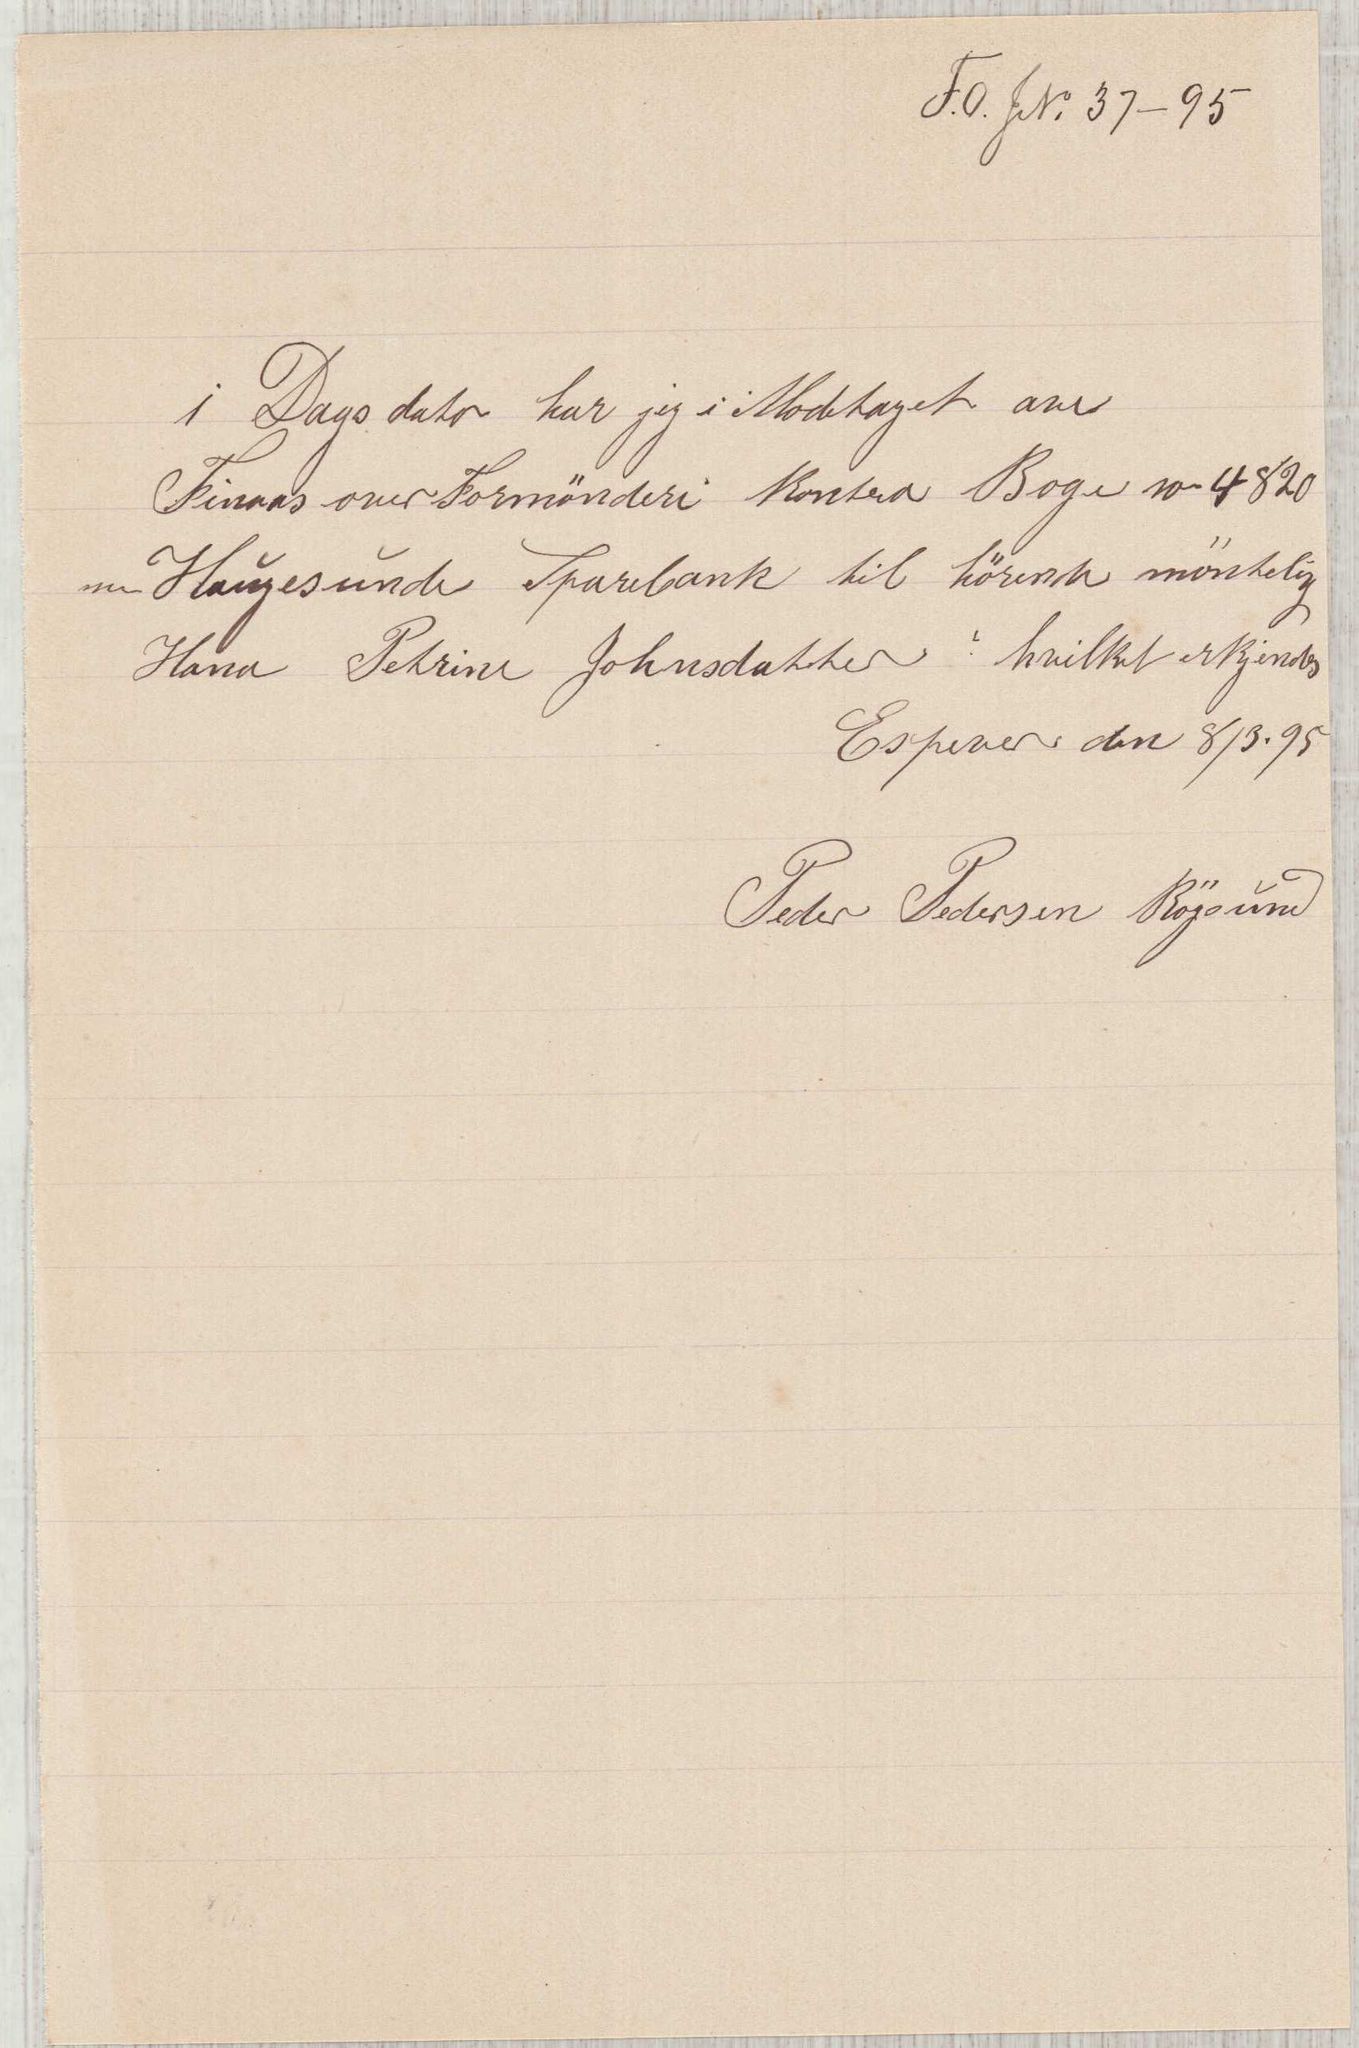 F.O. J.No. 37-95
i Dags dato har jeg i Modtaget ave
Finaas over Formönderi Kontra Boge no 4820
Haugesunde Sparebank til hörende möntelig
Hana Petrine Johnsdatter : hvilket erkjendes
Espever den 8/3.95
Peder Pedersen Rögsund